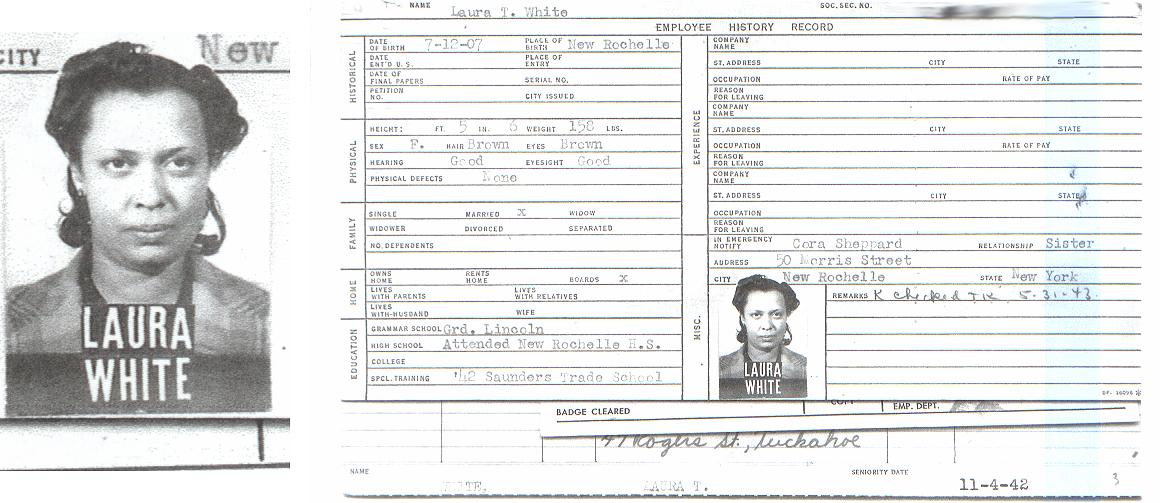 CITY New
LAURA
WHITE
NAME Laura T. White SOC. SEC. NO.
EMPLOYEE HISTORY RECORD
HISTORICAL
DATE OF BIRTH 7-12-07 PLACE OF BIRTH New Rochelle
DATE ENT'D U.S. PLACE OF ENTRY
DATE OF FINAL PAPERS SERIAL NO.
PETITION NO. CITY ISSUED
PHYSICAL
HEIGHT: FT. 5 IN. 6 WEIGHT 158 LBS.
SEX F. HAIR Brown EYES Brown
HEARING Good EYESIGHT Good
PHYSICAL DEFECTS None
FAMILY
SINGLE MARRIED X WIDOW
WIDOWER DIVORCED SEPARATED
NO. DEPENDENTS
HOME
OWNS HOME RENTS HOME BOARDS X
LIVES WITH PARENTS LIVES WITH RELATIVES
LIVES WITH-HUSBAND WIFE
EDUCATION
GRAMMAR SCHOOL Grd. Lincoln
HIGH SCHOOL Attended New Rochelle H.S.
COLLEGE
SPCL. TRAINING '42 Saunders Trade School
EXPERIENCE
COMPANY NAME
ST. ADDRESS CITY STATE
OCCUPATION RATE OF PAY
REASON FOR LEAVING
COMPANY NAME
ST. ADDRESS CITY STATE
OCCUPATION RATE OF PAY
REASON FOR LEAVING
COMPANY NAME
ST. ADDRESS CITY STATE
OCCUPATION
REASON FOR LEAVING
MISC.
IN EMERGENCY NOTIFY Cora Sheppard RELATIONSHIP Sister
ADDRESS 50 Morris Street
CITY New Rochelle STATE New York
REMARKS K checked T.K. 5-31-43
LAURA
WHITE
BADGE CLEARED EMP. DEPT.
47 Rogers St., Tuckahoe
NAME SENIORITY DATE
WHITE, LAURA T. 11-4-42
3